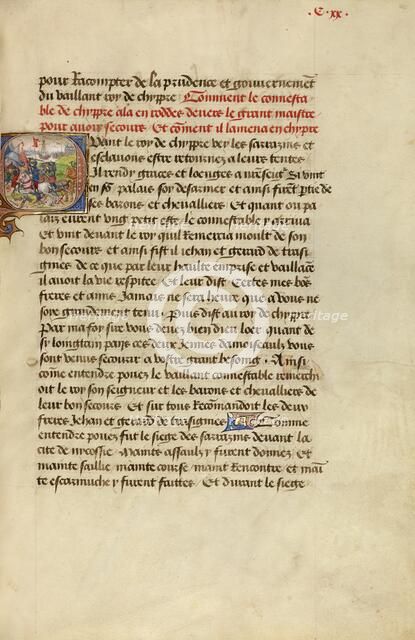 .C. xx.
pour Racompter de la prudence et gouvernement
du vaillant roy de chyppre Comment le connesta
ble de chyppre ala en roddes devers le grant maistre
pour avoir secours Et coment il lamena en chyppre
Quant le roy de chyppre vey les sarrazins et
esclavons estre retournez a leurs tentes
Il rendy graces et loenges a nostre seigneur Si vint
en son palais soy desarmer et ainsi firent partie de
ses barons et chevalliers Et quant ou pa
lais eurent ung petit este le connestable y arriva
Et vint devant le roy qui Remercia moult de son
bon secours et ainsi fist il iehan et gerard de trasi
gnies de ce que par leur haulte emprise et vaillance
il avoit la vie respitee Et leur dist Certes mes beaux
freres et amis Jamais ne sera heure que a vous ne
soye grandement tenu Puis dist au roy de chyppre
Par ma foy sire vous devez bien dieu loer quant de
sy loingtain pais ces deux Jennes damoiseaulx vous
sont venus secourir a vostre grant besoing Ainsi
come entendre pouez le vaillant connestable remerchi
oit le roy son seigneur et les barons et chevalliers de
leur bon secours Et sur tous Recomandoit les deux
freres Jehan et gerard de trasignies Comme
entendre pouez fut le siege des sarrazins devant la
cite de nicossie Maints assaulx y furent donnez et
mainte saillie mainte course maint Rencontre et main
te escarmuche y furent faittes Et durant le siege
heritage